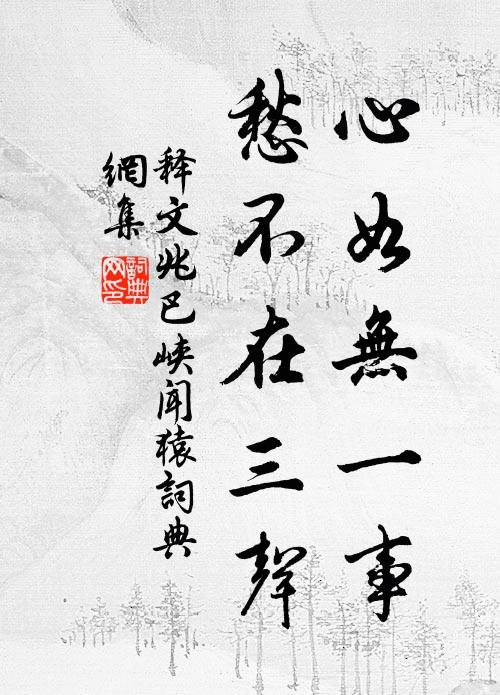 心如無一事
愁不在三聲
释文兆巴峽聞猿詞典
網集
詞典
网印